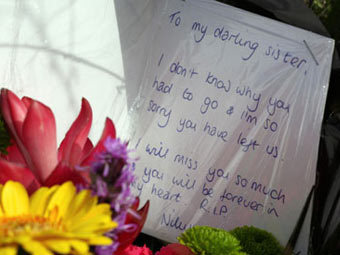 To my darling sister,
I don't know why you
had to go & I'm so
sorry you have left us
I will miss you so much
you will be forever in
heart R.I.P